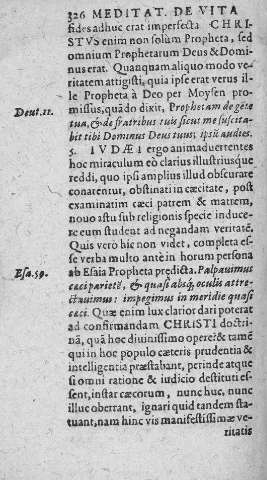 326 MEDITAT. DE VITA
fides adhuc erat imperfecta CHRI-
STVS enim non solùm Propheta, sed
omnium Prophetarum Deus & Domi-
nus erat. Quanquam aliquo modo ve-
ritatem attigisti, quia ipse erat verus il-
le Propheta à Deo per Moysen pro-
missus, quãdo dixit, Prophetam de gẽte
Deut. 11.
tua, & de fratribus tuis sicut me suscita-
bit tibi Dominus Deus tuus: ipsũ audies.
5. IVDÆI ergo animaduertentes
hoc miraculum eò clarius illustriusque
reddi, quo ipsi amplius illud obscurare
conarentur, obstinati in cæcitate, post
examinatim cæci patrem & matrem,
nouo astu sub religionis specie induce-
re eum student ad negandam veritatẽ.
Quis verò hîc non videt, completa es-
se verba multo antè in horum persona
ab Esaia Propheta prędicta. Palpauimus
Esa. 59.
cæci parietẽ, & quasi absq; oculis attre-
ctauimus: impegimus in meridie quasi
cæci. Quæ enim lux clarior dari poterat
ad confirmandam CHRISTI doctri-
nã, quã hoc diuinissimo opere? & tamẽ
qui in hoc populo cæteris prudentia &
intelligentia præstabant, perinde atque
si omni ratione & iudicio destituti es-
sent, instar cæcorum, nunc huc, nunc
illuc oberrant, ignari quid tandem sta-
tuant, nam hinc vis manifestissimæ ve-
ritatis